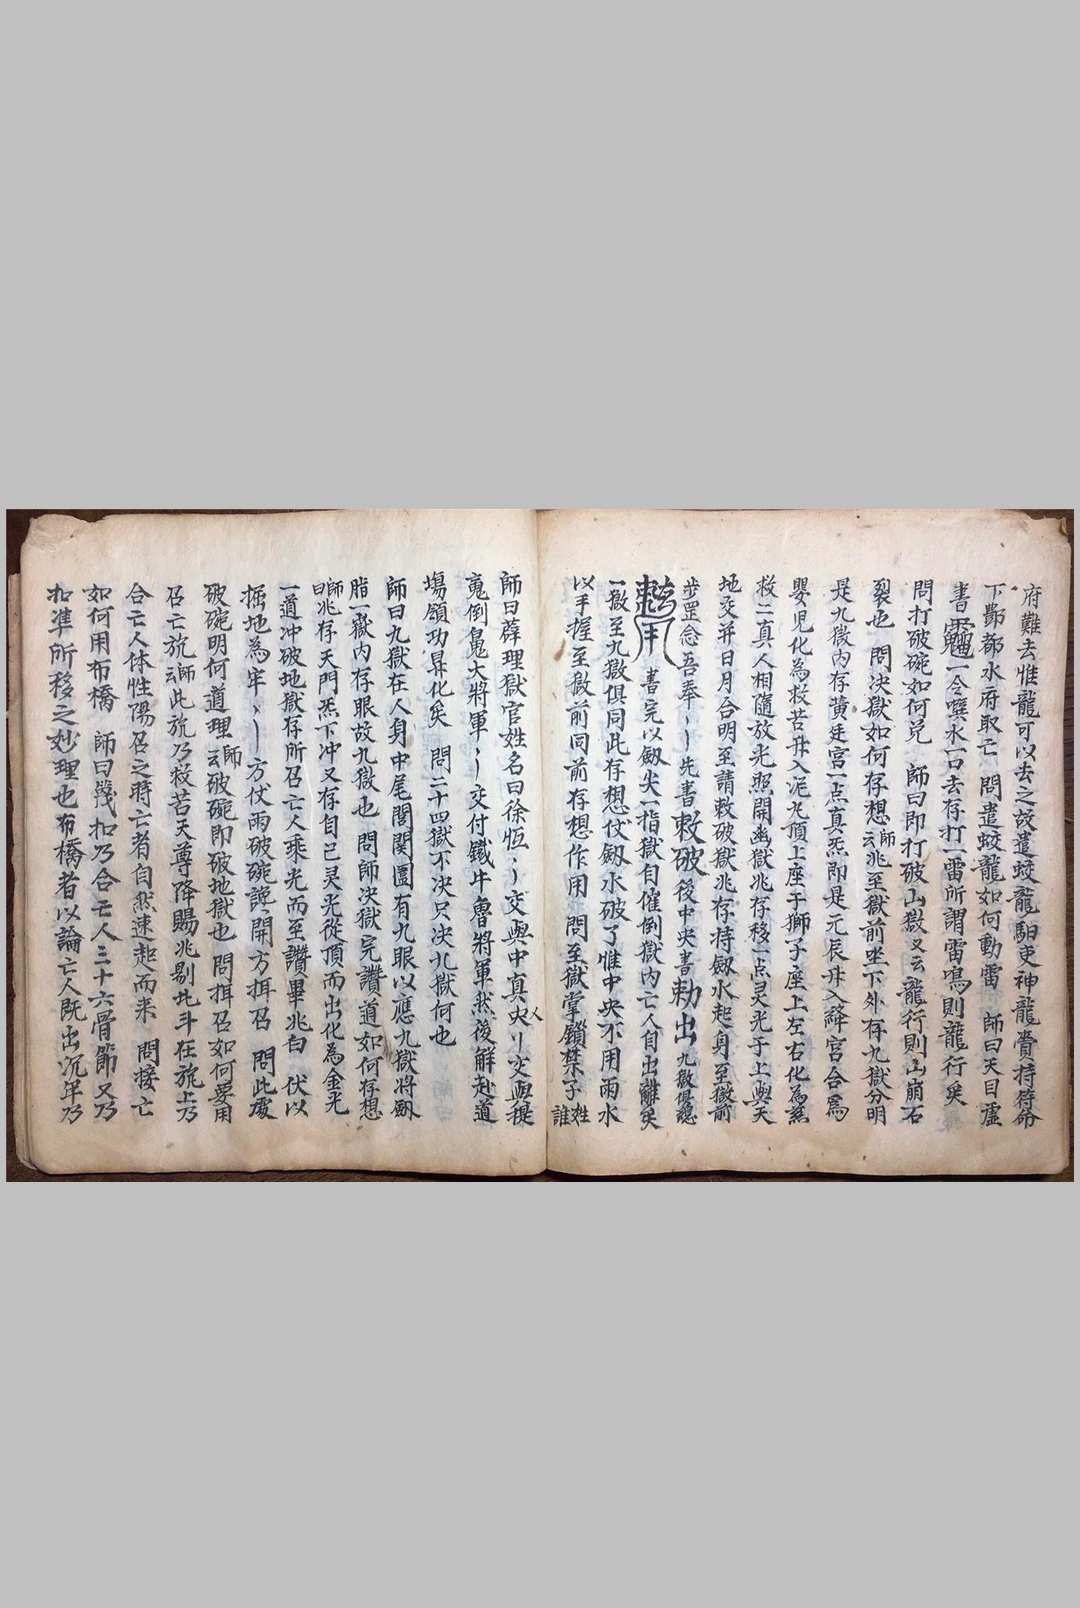 府難去惟龍可以去之故遣蛟龍馹吏神龍賫持符命
下酆都水府取亡 問遣蛟龍如何動雷 師曰天目虛
書 一令噀水一口去存打一雷所謂雷鳴則龍行矣
問打破碗如何兌 師曰即打破山獄又云龍行則山崩石
裂也 問决獄如何存想師云兆至獄前坐下外存九獄分明
是九獄內存黃廷宮一点真炁即是元辰升入絳宮合為
嬰児化為救苦升入泥丸頂上座于獅子座上左右化為慈
救二真人相隨放光照開幽獄兆存移一点灵光于上與天
地交并日月合明至請敕破獄兆存持劔水起身至獄前
步罡念吾奉丶丶先書敕破後中央書勅出九獄俱總
書完以劔尖一指獄自催倒獄內亡人自出離矣
一獄至九獄俱同此存想仗劔水破了惟中央不用雨水
以手握至獄前同前存想作用 問至獄掌鎖禁子姓誰
師曰薛理獄官姓名曰徐恆丶丶交與中真火人刂交與提
冤倒鬼大將軍丶丶交付鐵牛魯將軍然後解赴道
場領功昇化矣 問二十四獄不决只决九獄何也
師曰九獄在人身中尾閭関圄有九眼以應九獄將劔
脂一獄內存眼故九獄也 問師决獄完讚道如何存想
師曰兆存天門炁下冲又存自己灵光從頂而出化為金光
一道冲破地獄存所召亡人乘光而至讚畢兆白 伏以
掘地為牢丶丶方仗雨破碗諕開方挕召 問此處
破碗明何道理師云破碗即破地獄也問挕召如何要用
召亡旐師云此旐乃救苦天尊降賜兆剔北斗在旐上乃
合亡人体性陽召之時亡者自然速起而来 問接亡
如何用布橋 師曰幾扣乃合亡人三十六骨節又乃
扣準所移之妙理也布橋者以論亡人既出沉牢乃